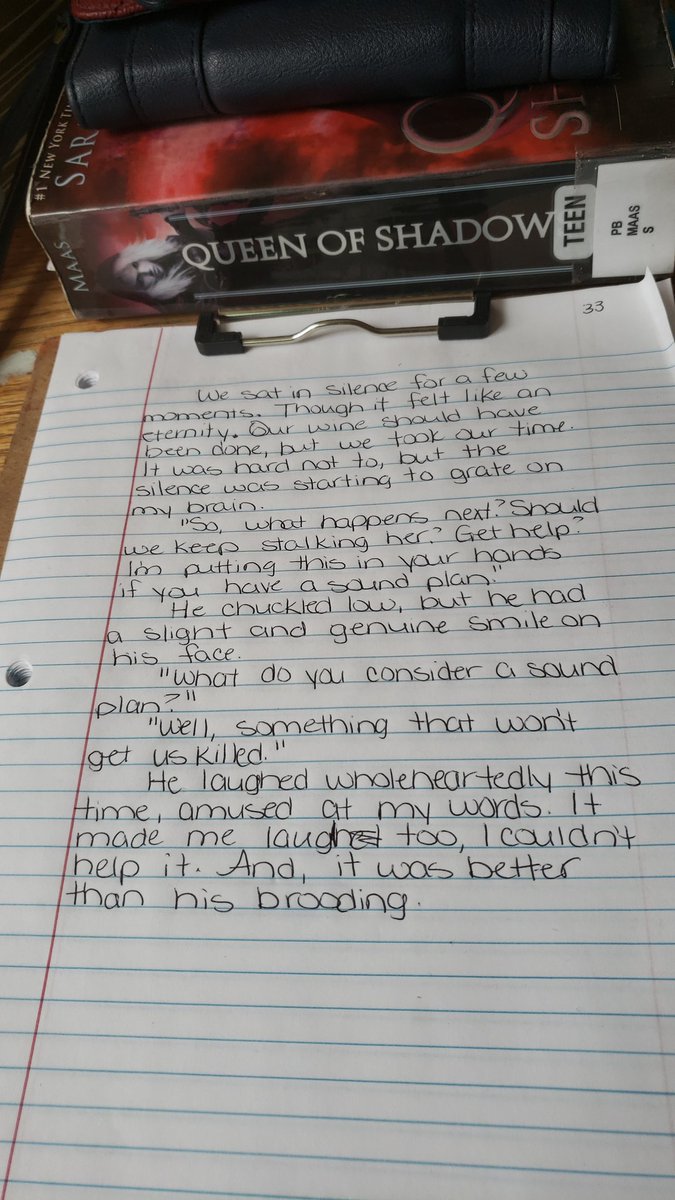 #1 NEW YORK TI
SAR
SH
MAAS
QUEEN OF SHADOW
TEEN
PB
MAAS
S
33
We sat in silence for a few
moments. Though it felt like an
eternity. Our wine should have
been done, but we took our time.
It was hard not to, but the
silence was starting to grate on
my brain.
"So, what happens next? Should
we keep stalking her? Get help?
Im putting this in your hands
if you have a sound plan."
He chuckled low, but he had
a slight and genuine smile on
his face.
"What do you consider a sound
plan?"
"Well, something that won't
get us killed."
He laughed wholeheartedly this
time, amused at my words. It
made me laugh too, I couldn't
help it. And, it was better
than his brooding.